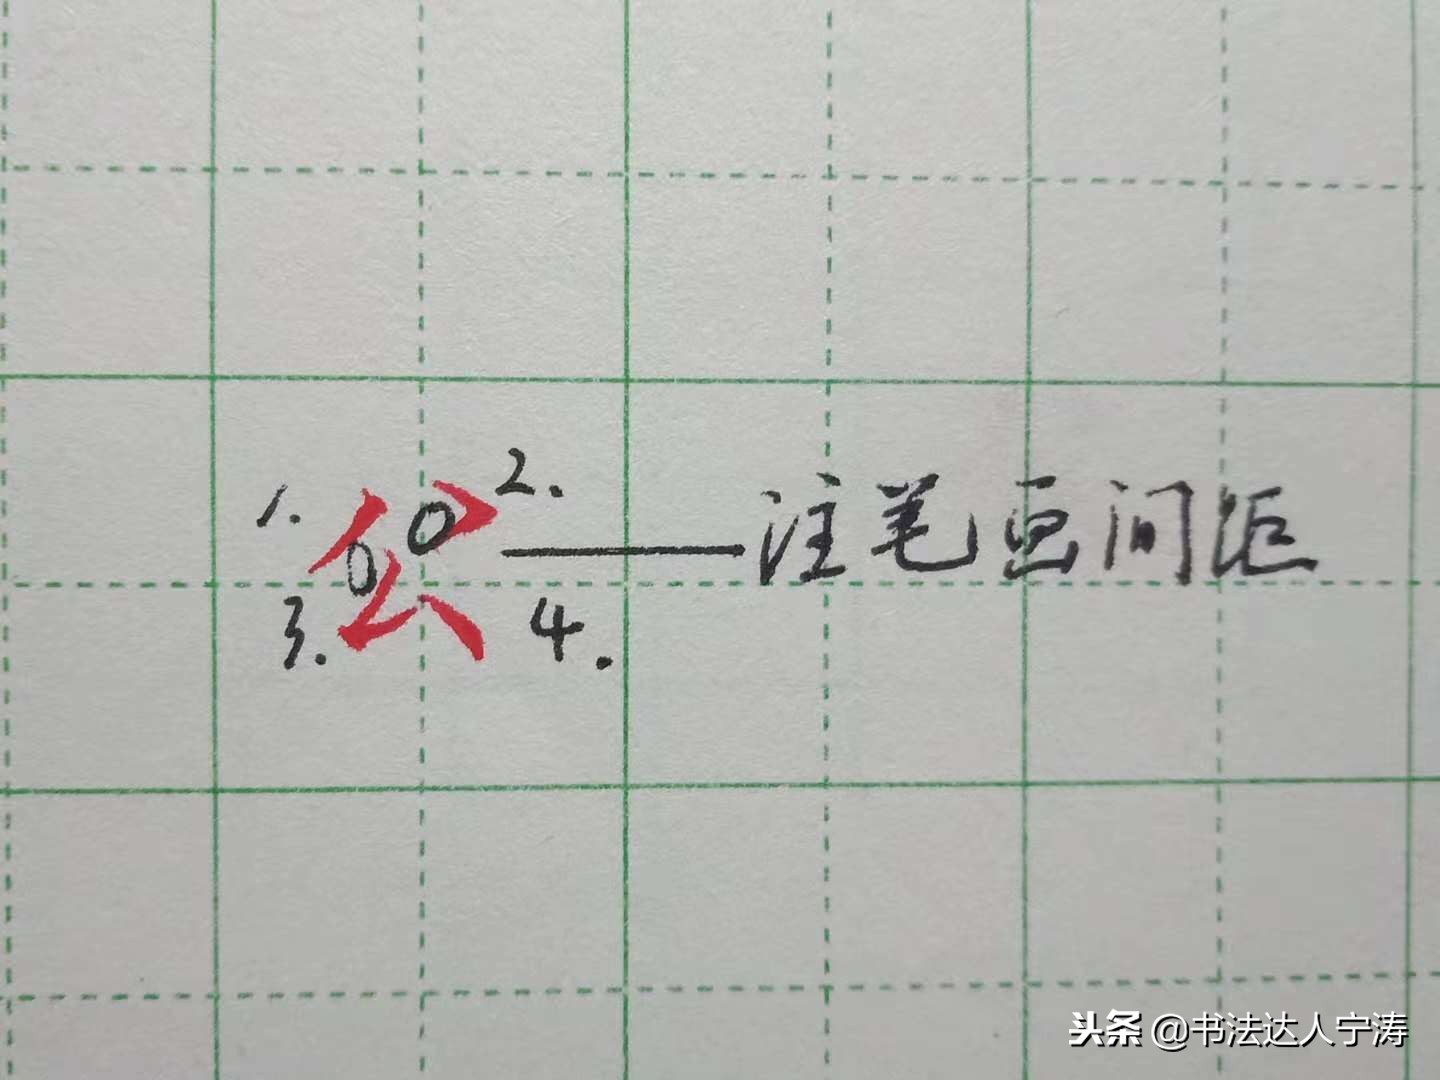 1. 公 2. 注笔画间距
3. 4.
头条 @书法达人宁涛